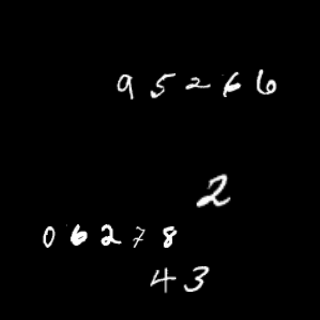 95266
2
06278
43